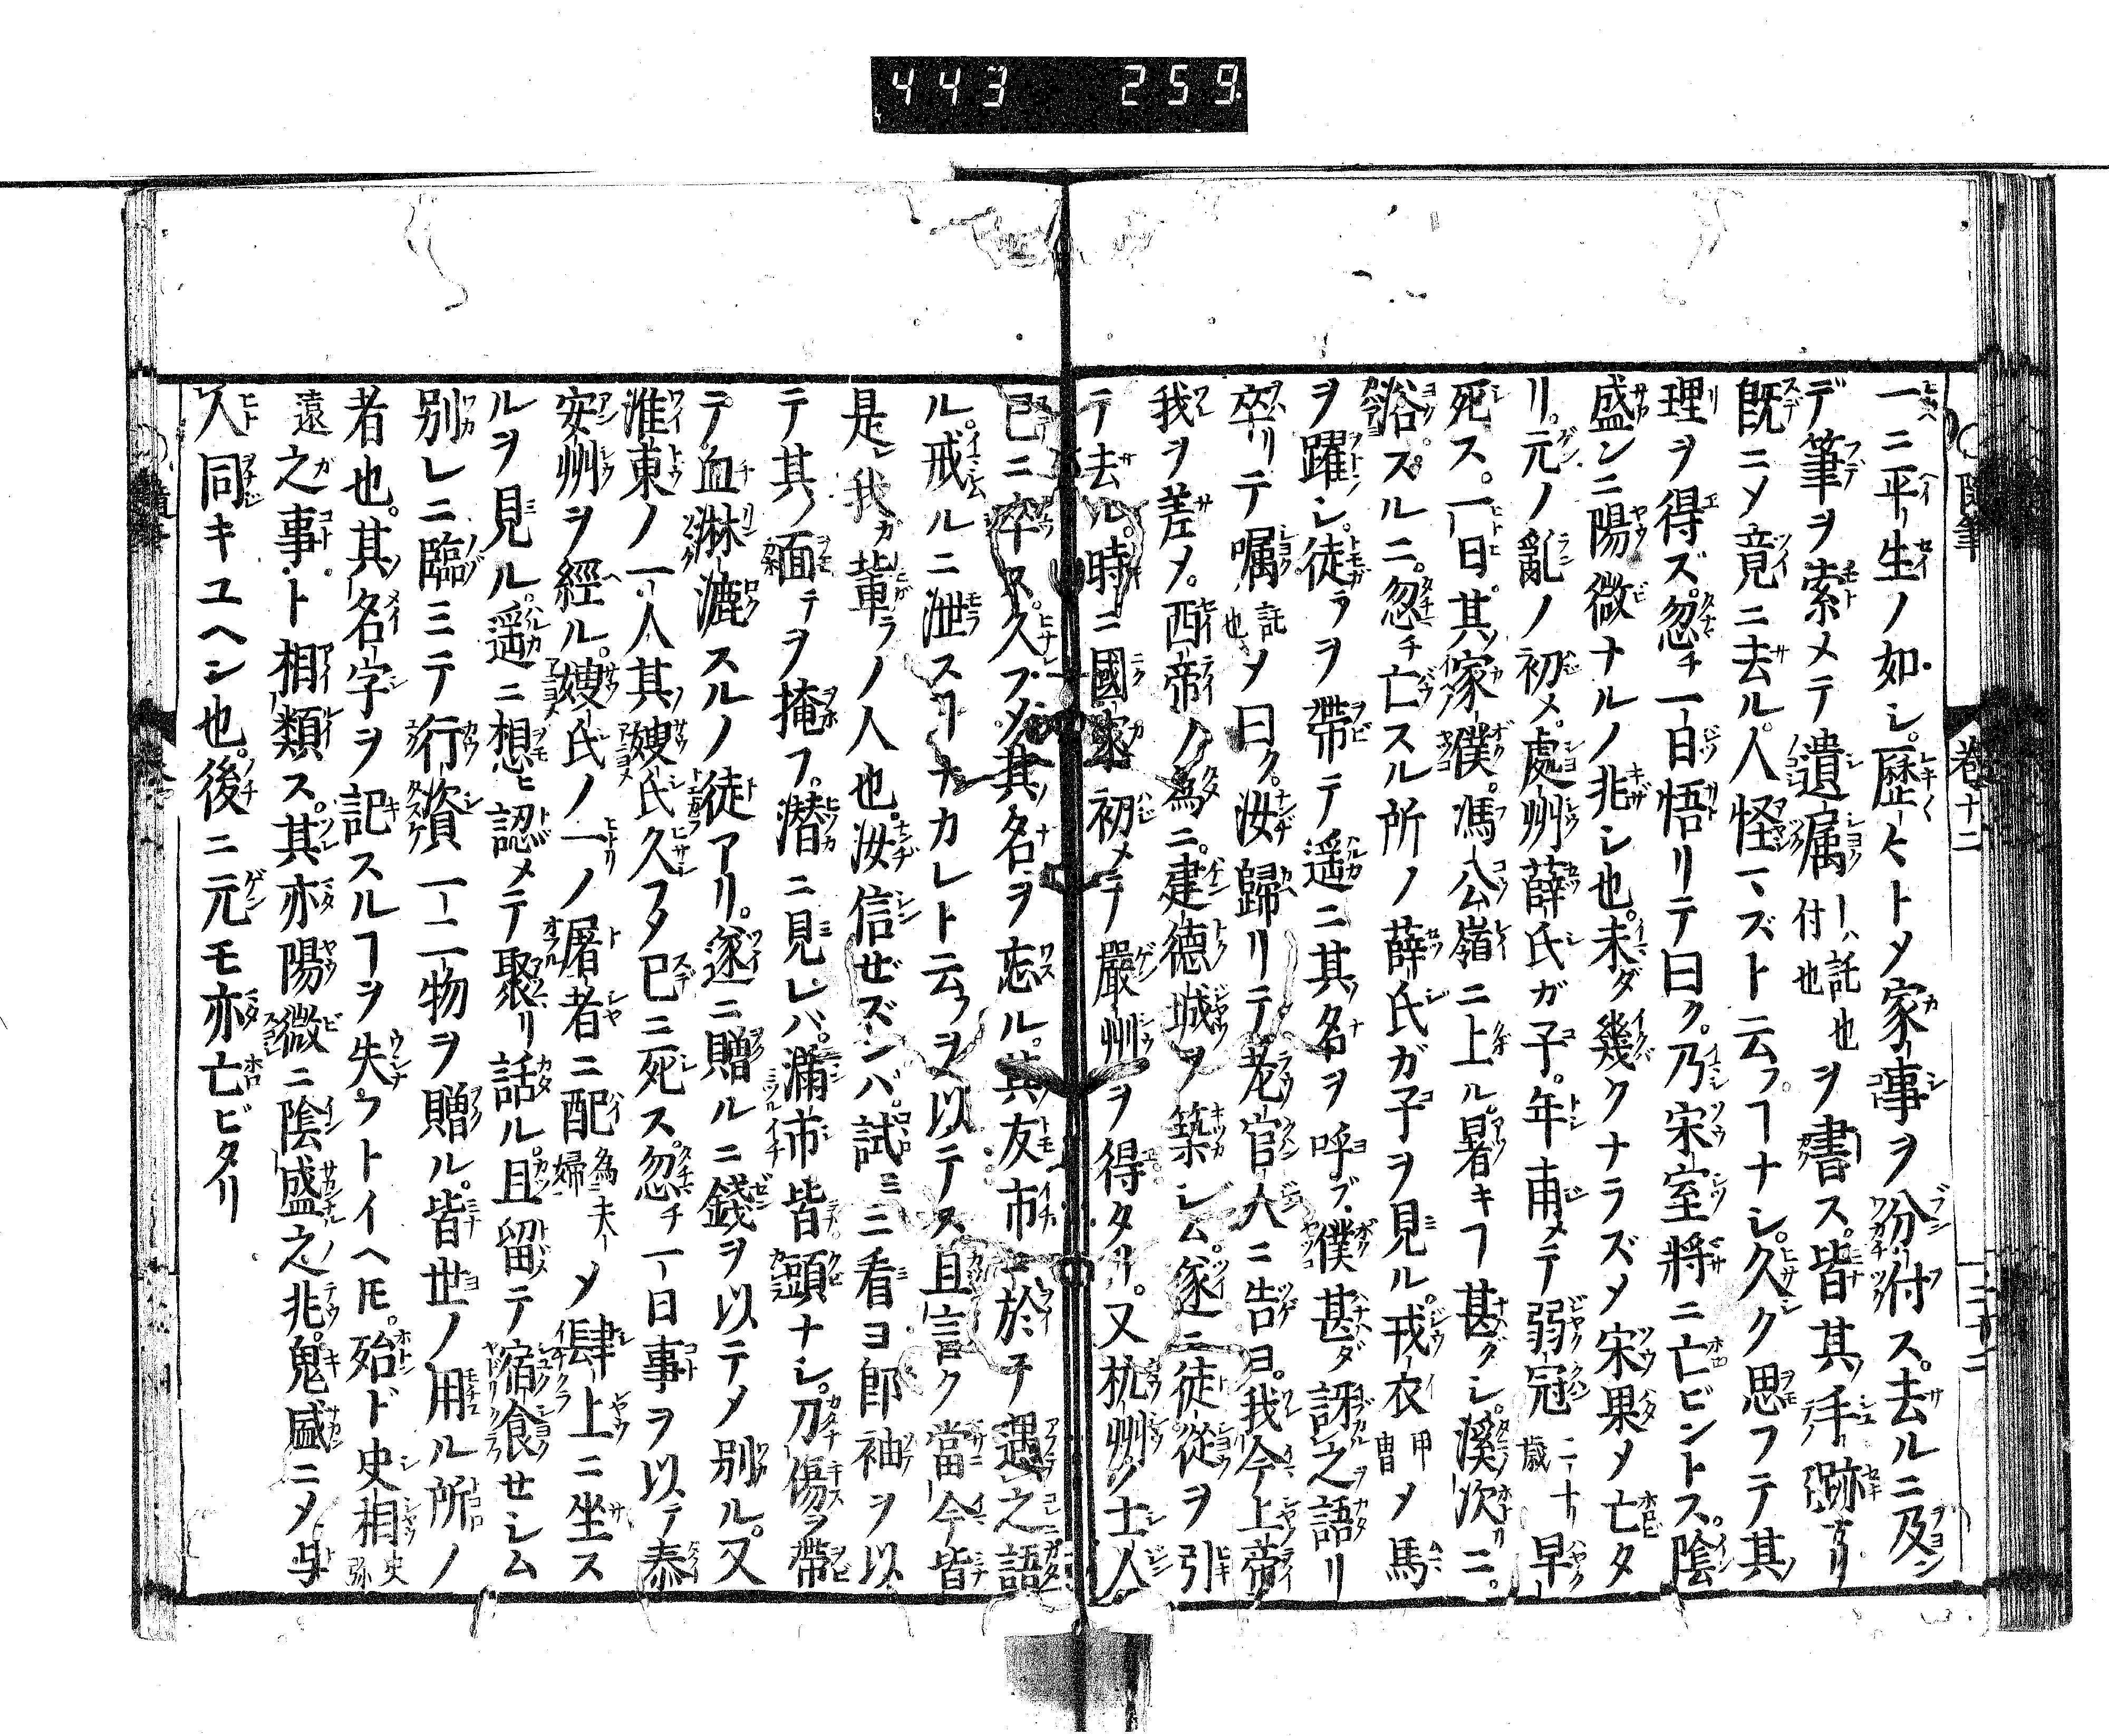 443 259
隨筆 巻十二
一ニ平生ノ如シ。歴々トメ家事ヲ分付ス。去ルニ及ン
デ筆ヲ索メテ遺属ーハ託也付也ヲ書ス。皆其手跡ナリ
既ニメ竟ニ去ル。人怪マズト云フヿナシ。久ク思フテ其
理ヲ得ズ。忽チ一日悟リテ曰ク。乃宋室將ニ亡ビントス。陰
盛ンニ陽微ナルノ兆シ也。未ダ幾クナラズメ宋果メ亡タ
リ。元ノ亂ノ初メ。處州薛氏ガ子。年甫メテ弱冠二十歳早
死ス。一日。其家僕。馮公嶺ニ上ル。暑キヿ甚ダシ。溪次ニ。
浴スルニ。忽チ亡スル所ノ薛氏ガ子ヲ見ル。戎衣甲冑メ馬
ヲ躍シ。徒ラヲ帯テ遥ニ其名ヲ呼ブ。僕甚ダ訝之語リ
卒リテ嘱託也メ曰ク。汝歸リテ。老官人ニ告ヨ。我今上帝
我ヲ差メ。西帝ノ為ニ。建徳城ヲ築シム。遂ニ徒從ヲ引
テ去ル。時ニ國家初メテ嚴州ヲ得タリ。又杭州ノ士人。
已ニ卒ス。久フメ其名ヲ忘ル。其友市ニ於テ遇之語
ル。戒ルニ泄スヿナカレト云ヲ以テス且言ク當今皆
是我カ輩ラノ人也。汝信ゼズンバ。試ミニ看ヨ即袖ヲ以
テ其面テヲ掩フ。潜ニ見レバ。滿市皆頭ナシ。刀傷ヲ帶
テ。血淋漉スルノ徒アリ。遂ニ贈ルニ錢ヲ以テメ別ル。又
淮東ノ一人其嫂氏久フタ已ニ死ス。忽チ一日事ヲ以テ泰
安州ヲ經ル。嫂氏ノ一ノ屠者ニ配為夫婦メ肆上ニ坐ス
ルヲ見ル。遥ニ想ヒ認メテ聚リ話ル。且留テ宿食セシム
別レニ臨ミテ行資一二物ヲ贈ル。皆世ノ用ル所ノ
者也。其名字ヲ記スルヿヲ失フトイヘ𪜈。殆ド史相史弥
遠之事ト相類ス。其亦陽微ニ陰盛之兆。鬼盛ニメ与
人同キユヘン也。後ニ元モ亦亡ビタリ